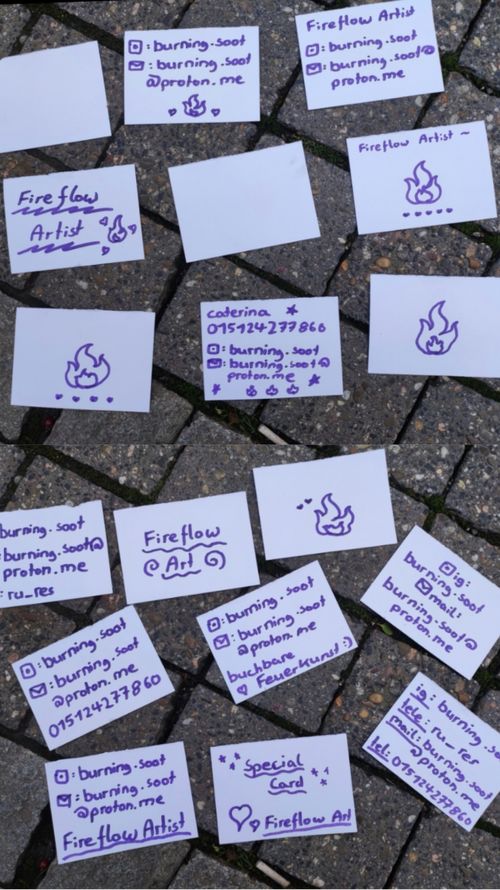 : burning.soot
: burning.soot
@proton.me
Fireflow Artist
: burning.soot
: burning.soot@
proton.me
Fireflow
Artist
Fireflow Artist ~
caterina
015124277860
: burning.soot
: burning.soot@
proton.me
burning.soot
: burning.soot@
proton.me
: ru_res
Fireflow
Art
: burning.soot
: burning.soot
@proton.me
015124277860
: burning.soot
: burning.soot
@proton.me
buchbare
Feuerkunst :)
ig:
burning.soot
mail:
burning.soot@
proton.me
: burning.soot
: burning.soot
@proton.me
Fireflow Artist
Special
Card
Fireflow Art
ig: burning.so
tele: ru_res
mail: burning.soot
@proton.me
tel: 015124277860